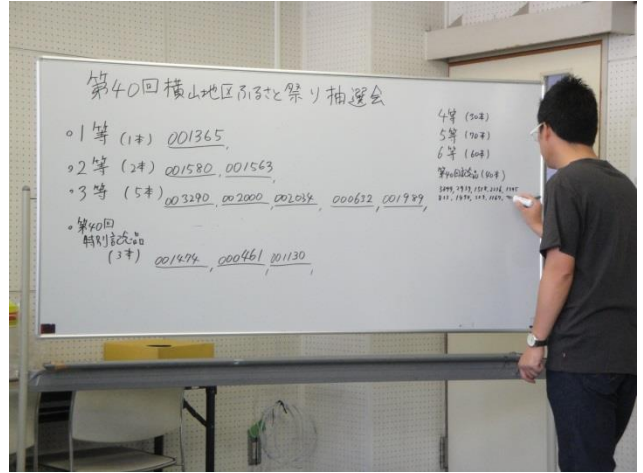 第40回横山地区ふるさと祭り抽選会
・1等 (1本) 001365,
・2等 (2本) 001580, 001563
・3等 (5本) 003290, 002000, 002034, 000632, 001989,
・第40回
特別記念品
(3本) 001474, 000461, 001130,
4等 (50本)
5等 (70本)
6等 (60本)
第40回記念品 (40本)